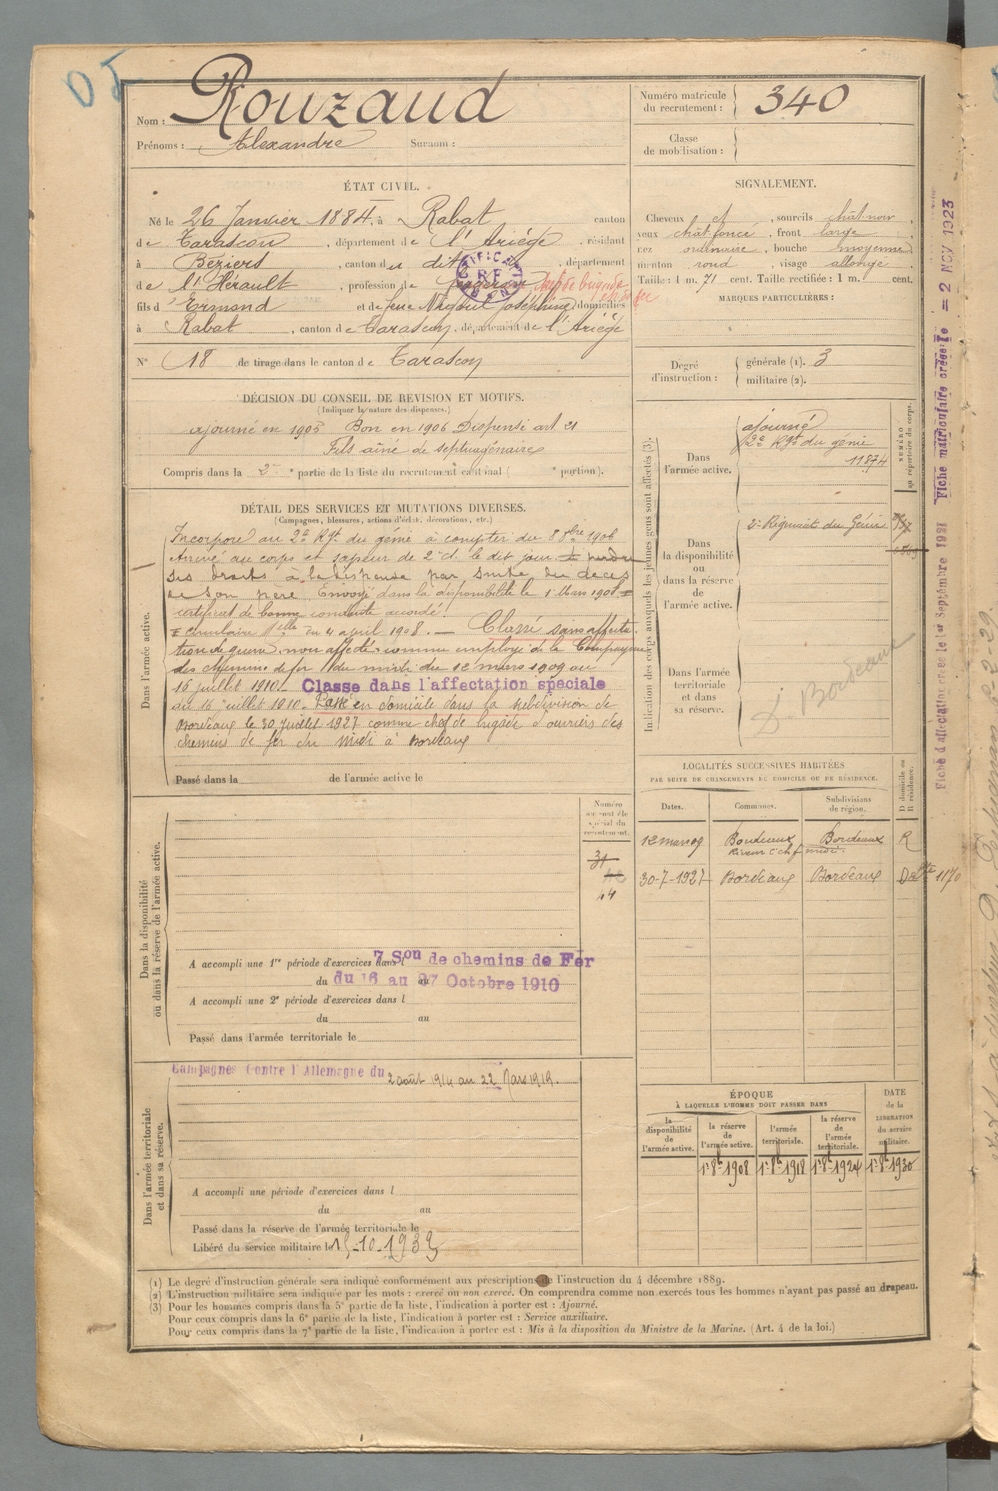 Nom : Rouzaud
Prénoms : Alexandre Surnom :
Numéro matricule du recrutement : 340
Classe de mobilisation :
ÉTAT CIVIL.
Né le 26 Janvier 1884, à Rabat canton
de Tarascon, département de l'Ariège, résidant
à Beziers, canton du dit, département
de l'Hérault, profession de
fils d'Ermond et de feue Joséphine domiciliés
à Rabat, canton de Tarascon, département de l'Ariège
N° 18 de tirage dans le canton de Tarascon
SIGNALEMENT.
Cheveux et sourcils chât. noir
yeux chât foncé, front large
nez ordinaire, bouche moyenne
menton rond, visage allongé
Taille : 1 m. 71 cent. Taille rectifiée : 1 m. cent.
MARQUES PARTICULIÈRES :
Degré d'instruction :
générale (1). 3
militaire (2).
DÉCISION DU CONSEIL DE REVISION ET MOTIFS.
(Indiquer la nature des dispenses.)
ajourné en 1905 Bon en 1906 Dispensé art 21
Fils aîné de septuagénaire
Compris dans la 2e partie de la liste du recrutement cantonal ( e portion).
DÉTAIL DES SERVICES ET MUTATIONS DIVERSES.
(Campagnes, blessures, actions d'éclat, décorations, etc.)
Dans l'armée active.
Incorporé au 2e Rgt du génie à compter du 8 8bre 1906
Arrivé au corps et sapeur de 2e cl. le dit jour perdu
ses droits à la dispense par suite du décès
de son père Envoyé dans la disponibilité le 1 Mars 1908
certificat de bonne conduite accordé.
circulaire du 4 april 1908. — Classé sans affecta-
tion de guerre, non affecté, comme employé de la Compagnie
des chemins de fer du midi du 12 mars 1909 au
16 juillet 1910 Classé dans l'affectation spéciale
du 16 juillet 1910. Passé en domicile dans la subdivision de
Bordeaux le 30 Juillet 1927 comme chef de brigade d'ouvriers des
chemins de fer du Midi à Bordeaux
Passé dans la de l'armée active le
Indication des corps auxquels les jeunes gens sont affectés (3).
Dans l'armée active.
ajourné
2e Rgt du génie
11874
NUMÉRO au répertoire du corps.
Dans la disponibilité ou dans la réserve de l'armée active.
2e Régiment du Génie
Dans l'armée territoriale et dans sa réserve.
Bordeaux
LOCALITÉS SUCCESSIVES HABITÉES
PAR SUITE DE CHANGEMENTS DE DOMICILE OU DE RÉSIDENCE.
Dates. Communes. Subdivisions de région. D domicile ou R résidence.
12 mars 09 Bordeaux Bordeaux R
30-7-1927 Bordeaux Bordeaux
1170
Dans la disponibilité ou dans la réserve de l'armée active.
Numéro au contrôle spécial du recrutement.
31
44
A accompli une 1re période d'exercices dans l 7 Son de chemins de Fer
du du 16 au 27 Octobre 1910
A accompli une 2e période d'exercices dans l
du au
Passé dans l'armée territoriale le
Dans l'armée territoriale et dans sa réserve.
Campagnes Contre l'Allemagne du 2 août 1914 au 22 Mars 1919.
A accompli une période d'exercices dans l
du au
Passé dans la réserve de l'armée territoriale le
Libéré du service militaire le 15-10-1933
ÉPOQUE
À LAQUELLE L'HOMME DOIT PASSER DANS
DATE de la LIBÉRATION du service militaire.
la disponibilité de l'armée active. la réserve de l'armée active. l'armée territoriale. la réserve de l'armée territoriale.
1er 8b 1908 1er 8b 1918 1er 8b 1924 1er 8b 1930
(1) Le degré d'instruction générale sera indiqué conformément aux prescriptions de l'instruction du 4 décembre 1889.
(2) L'instruction militaire sera indiquée par les mots : exercé ou non exercé. On comprendra comme non exercés tous les hommes n'ayant pas passé au drapeau.
(3) Pour les hommes compris dans la 5e partie de la liste, l'indication à porter est : Ajourné.
Pour ceux compris dans la 6e partie de la liste, l'indication à porter est : Service auxiliaire.
Pour ceux compris dans la 7e partie de la liste, l'indication à porter est : Mis à la disposition du Ministre de la Marine. (Art. 4 de la loi.)
Fiche d'affectation créée le 1er Septembre 1921 Fiche matriculaire créée le = 2 NOV 1923